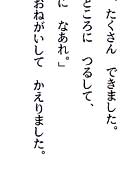 、たくさん　できました。
ところに　つるして、
に　なあれ。」
おねがいして　かえりました。